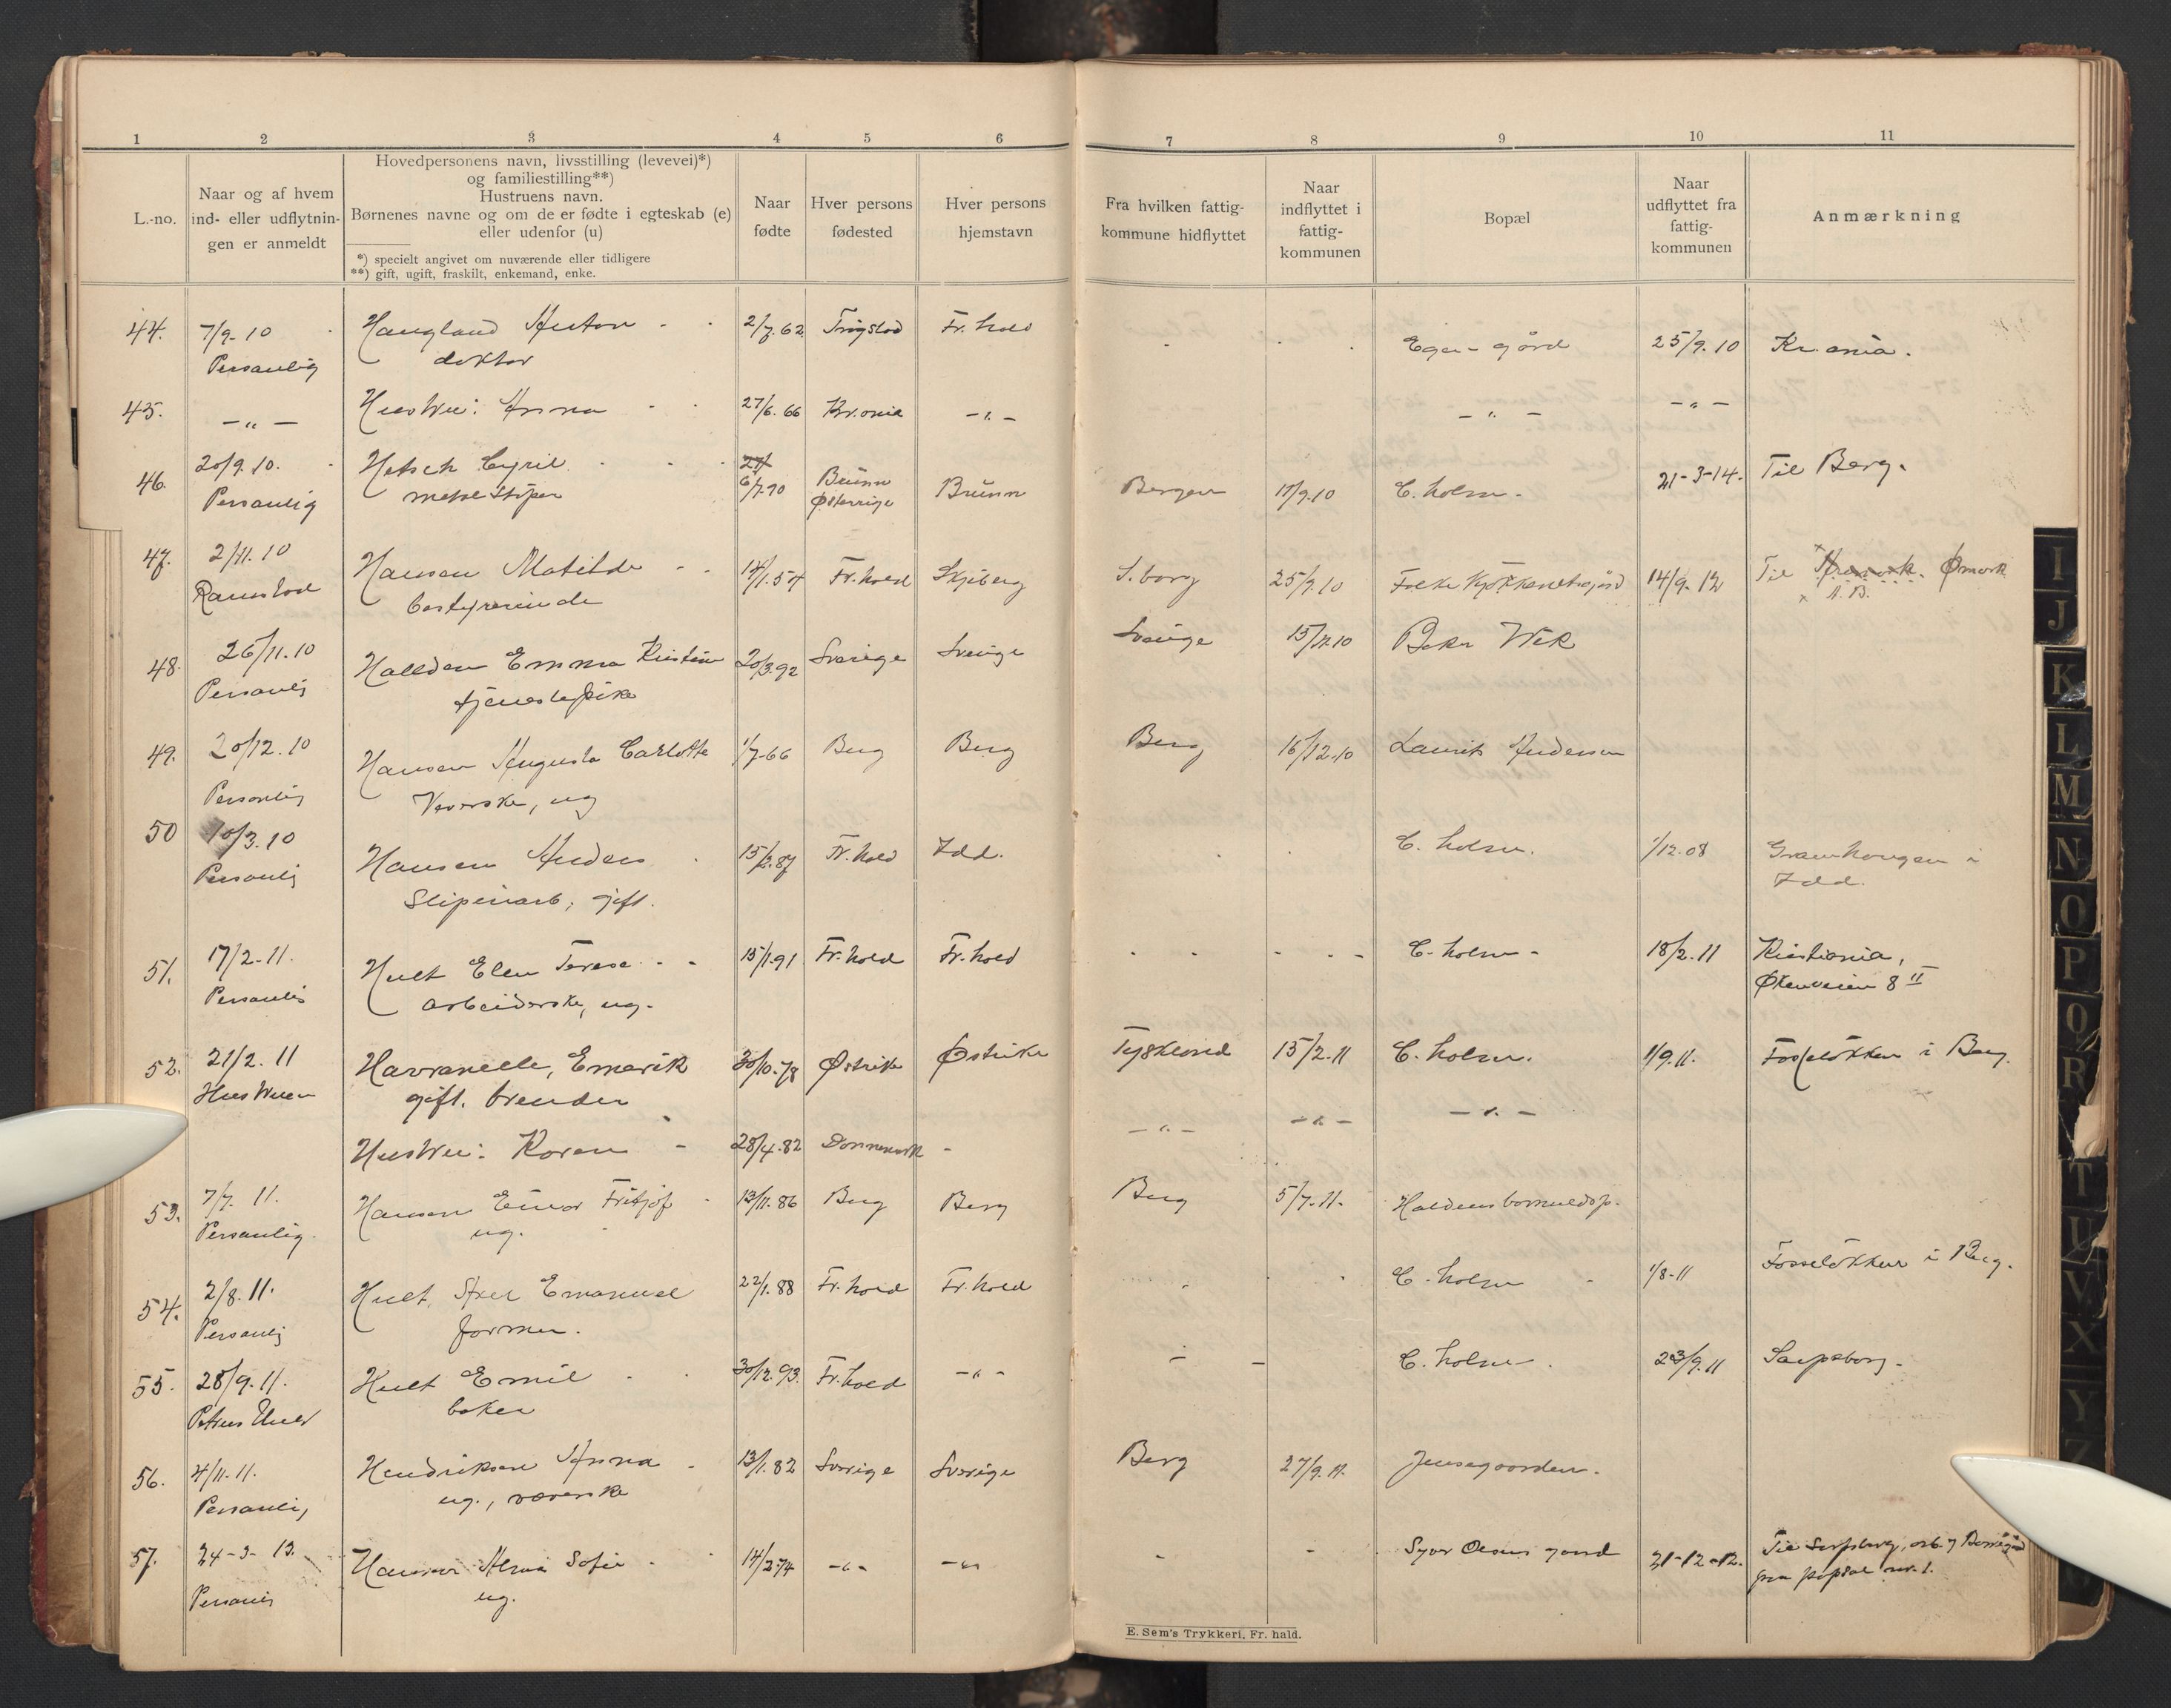 1 2 3 4 5 6 7 8 9 10 11
L.-no.
Naar og af hvem
ind- eller udflytnin-
gen er anmeldt
Hovedpersonens navn, livsstilling (levevei)*)
og familiestilling**)
Hustruens navn.
Børnenes navne og om de er fødte i egteskab (e)
eller udenfor (u)
*) specielt angivet om nuværende eller tidligere
**) gift, ugift, fraskilt, enkemand, enke.
Naar
fødte
Hver persons
fødested
Hver persons
hjemstavn
Fra hvilken fattig-
kommune hidflyttet
Naar
indflyttet i
fattig-
kommunen
Bopæl
Naar
udflyttet fra
fattig-
kommunen
Anmærkning
44. 7/9-10 Haugland Anton 2/7.62 Trygstad Fr.hald Egen gård 25/9.10 Kr.ania.
Personlig doktor
45. -"- Hustru: Anna 27/6.66 Kr.ania -"- -"- -"-
46. 20/9.10. Hetsch Cyril 6/7.90 Brünn Østerrige Brünn Bergen 17/9.10 C. holm. 21-3-14. Til Berg.
Personlig metalstøper
47. 2/11.10 Hansen Matilde 14/1.54 Fr.hald Skjeberg S.borg 25/9.10 Folkekjøkkenetsgård 14/9.12 Til Aremark. Ømark
Ramstad bestyrerinde
48. 26/11.10 Hallden Emma Kristine 20/3.92 Sverige Sverige Sverige 15/11.10 Baker Wek
Personlig tjenestepike
49. 20/12.10 Hansen Augusta Carlotte 1/7-66 Berg Berg Berg 16/12.10 Laurits Andersen
Personlig Veverske, ug
50 10/3.10 Hansen Anders 15/2.87 Fr.hald Idd. C. holm. 1/12.08 Grauhaugen i
Personlig Sliperiarb; gift. Idd.
51. 17/2-11. Hult Elen Terese 15/1.91 Fr.hald Fr.hald C. holm 18/2.11 Kristiania,
Personlig arbeiderske, ug. Økenveien 8 II
52. 21/2.11 Havranelle, Emerik 30/10.78 Østrike Østrike Tyskland 15/2.11 C. holm. 1/9.11. Fosseløkken i Berg.
Hustruen gift. brender
Hustru: Karen 28/4.82 Dannemark - -"- -"- -"-
53. 7/7.11. Hansen Einar Fritjof 13/11.86 Berg Berg Berg 5/7.11. Haldens bomuldsp.
Personlig. ug.
54. 2/8.11. Hult, Axel Emanuel 22/1.88 Fr.hald Fr.hald C. holm 1/8-11 Fosseløkken i Berg.
Personlig former.
55. 28/9.11. Hult Emil 30/12.93. Fr.hald -"- C. holm. 23/9.11 Sarpsborg.
Petrus Hult baker
56. 4/11.11. Hendriksen Anna 13/1.82 Sverige Sverige Berg 27/9.11. Jensegaarden.
Personlig ug., væverske
57. 24-3-12. Hansen Alma Sofie 14/2 74 -"- -"- Syver Olsens gaard 21-12-12. Til Sarpsborg, arb. Borregård
Personlig ug. fra papsal nr. 1.
E. Sem's Trykkeri, Fr. hald.
I
J
K
L
M
N
O
P
Q
R
T
U
V
X
Y
Z